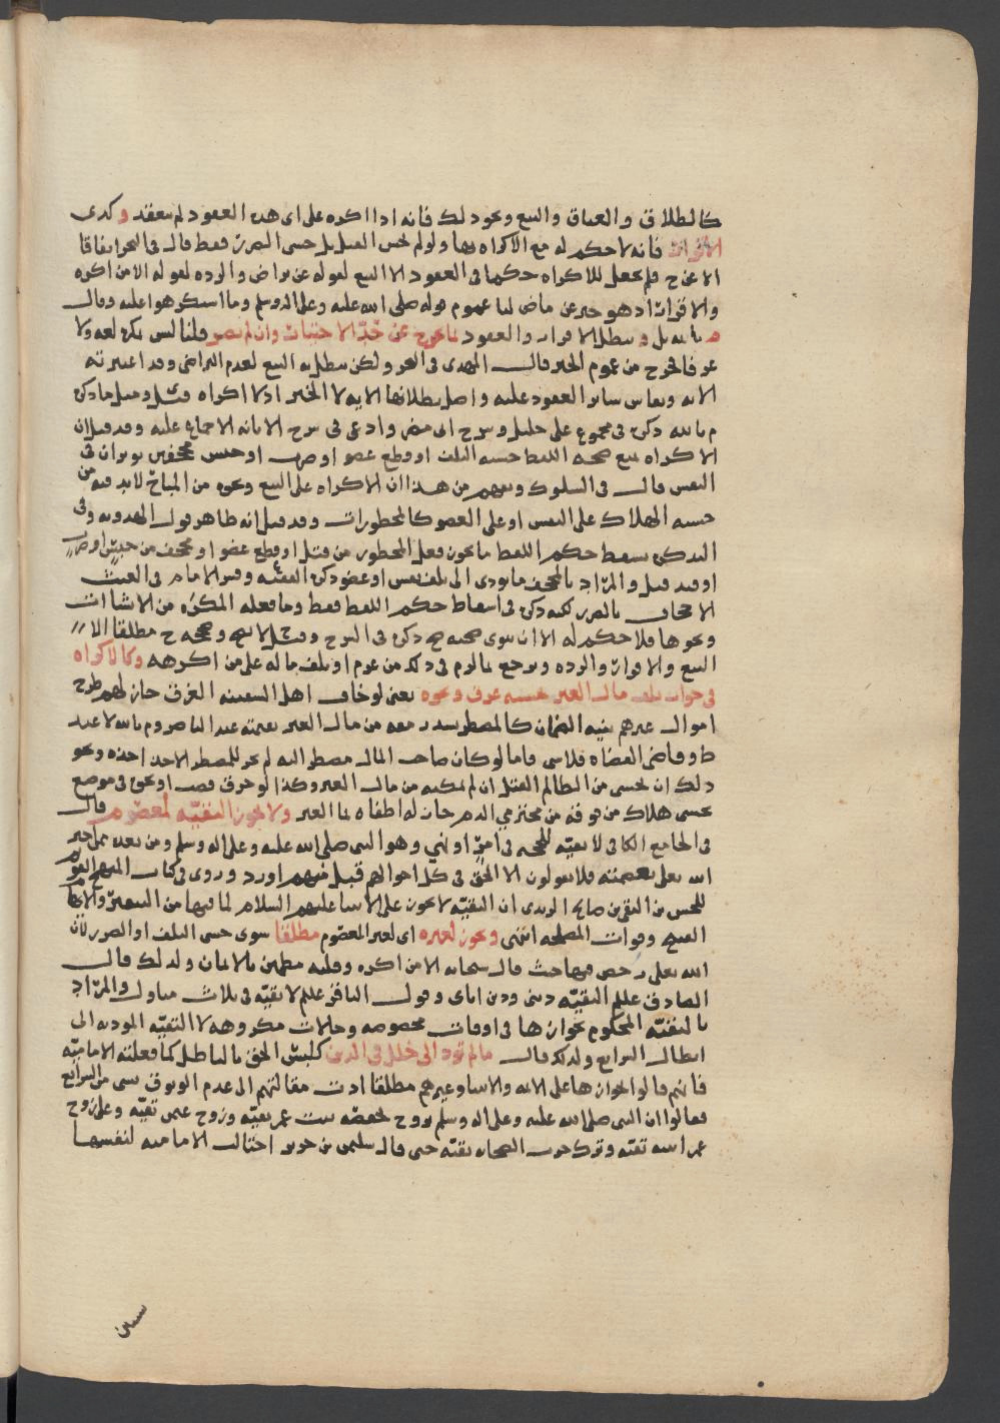 كالطلاق والعتاق والبيع ونحو ذلك فانه اذا اكره على اى هذه العقود لم ينعقد وكذى
الاقرار فانه لا حكم له مع الاكراه بها ولو لم يخش القتل بل خشى الضرر فقط قال فى البحر اتفاقا
الا عن ح فلم يجعل للاكراه حكما فى العقود الا البيع لقوله عن تراض والرده لقوله الا من اكره
والاقرار اذ هو خبر عن ماض لنا عموم قوله صلى الله عليه وعلى اله وسلم وما استكرهوا عليه وقال
م بالله بل ويبطل الاقرار والعقود ما خرج عن حد الاختيار وان لم يضر قلنا ليس مكره لغة ولا
عرفا فخرج من عموم الخبر قال المهدى فى البحر ولكن يبطل به البيع لعدم التراضى وقد اعتبرته
الايه ويقاس سائر العقود عليه واصل بطلانها الايه لا الخبر اذ لا اكراه وقيل ما ذكره
م بالله ذكره فى مجموع على خليل وشرح ابى مضر وادعى فى شرح الابانه الاجماع عليه وقد قيل ان
الاكراه مع صحه اللفظ خشيه التلف او قطع عضو او ضرب او حبس مجحفين يوثران فى
النفس قال فى السلوك ويفهم من هذا ان الاكراه على البيع ونحوه من المباح لا بد فيه من
خشيه الهلاك على النفس او على العضو كالمحظورات وقد قيل انه ظاهر قول الهدويه وفى
التذكره يسقط حكم اللفظ ما يجوز فعل المحظور من قتل او قطع عضو او مجحف من حبس او ضرب
او قيد قيل والمراد بالمجحف ما يودى الى تلف نفس او عضو ذكره الفقيه وفسر الامام فى الغيث
الاجحاف بالضرر لكنه ذكره فى اسقاط حكم اللفظ فقط وما فعله المكره من الانشاات
ونحوها فلا حكم له الا ان ينوى صحته صح ذكره فى الشرح وقيل لا يصح وصححه ح مطلقا الا
البيع والاقرار والرده ويرجع بما لزم فى ذلك من غرم او تلف ماله على من اكرهه وكالاكراه
فى جواز تلف مال الغير خشيه غرق ونحوه يعنى لو خاف اهل السفينه الغرق جاز لهم طرح
اموال غيرهم بنيه الضمان كالمضطر يسد رمقه من مال الغير بقيمته عند الناصر وم بالله لا عند
ط وقاضى القضاه فلا شى فاما لو كان صاحب المال مضطر اليه لم يجز للمضطر الاخر اخذه ونحو
ذلك ان يخشى من الظالم القتل ان لم يمكنه من مال الغير وكذا لو حرق قصب او نحوه فى موضع
يخشى هلاك من هو فيه من محترمي الدم جاز له اطفاه بما الغير ولا يجوز التقيّه لمعصوم قال
فى الجامع الكافى لا تقيّه للحجه فى امر او نهي وهو النبى صلى الله عليه وعلى اله وسلم ومن بعده ممن اخبر
الله تعلى بعصمته فلا يقولون الا الحق فى كل احوالهم قبل منهم او رد وروى فى كتاب المنهج القويم
للحسن بن التقى بن صالح الزيدى ان التقيّه لا تجوز على الانبيا عليهم السلام لما فيها من التنفير والايهام
القبيح وفوات المصلحه انتهى ويجوز لغيره اى لغير المعصوم مطلقا سوى خشى التلف او الضرر لان
الله تعلى رخص فيها حيث قال سبحانه الا من اكره وقلبه مطمئن بالايمان ولذلك قال
الصادق عللم التقيّه دينى ودين اباى وقول الباقر عللم لا تقيّه فى ثلاث متاول والمراد
بالتقيّه المحكوم بجوازها فى اوقات مخصوصه وحالات مكروهه لا التقيّه الموديه الى
ابطال الشرايع ولذلك قال ما لم تود الى خلل فى الدين كلبس الحق بالباطل كما فعلته الاماميّه
فانهم قالوا بجوازها على الايمه والانبيا وغيرهم مطلقا ادت مقالتهم الى عدم الوثوق بشى من الشرايع
فقالوا ان النبى صلى الله عليه وعلى اله وسلم تزوج بحفصه بنت عمر تقيّه وزوج عثمن تقيّه وعلى زوج
عمر ابنته تقيّه وترك حرب الصحابه تقيّه حتى قال سليمن بن جرير احتالت الاماميه لنفسها